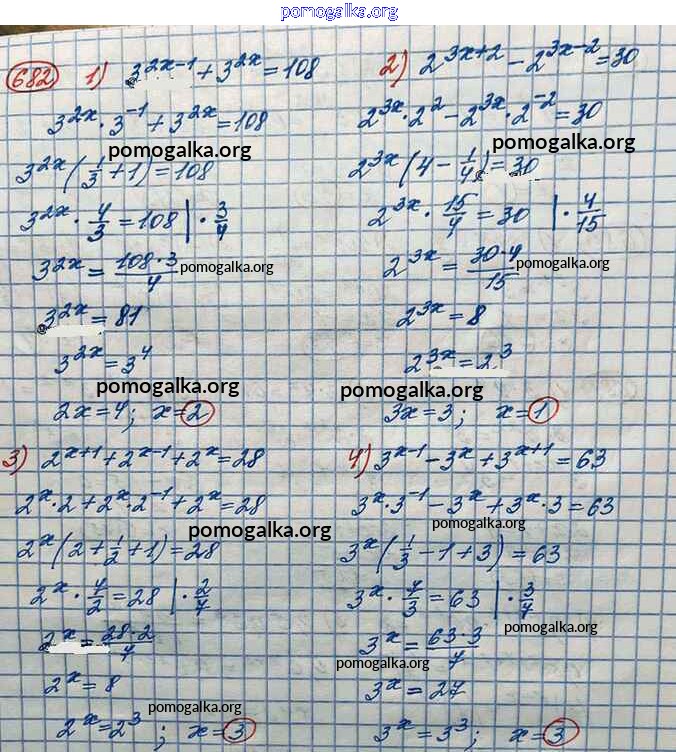 pomogalka.org
682 1) 3^{2x-1} + 3^{2x} = 108
3^{2x} · 3^{-1} + 3^{2x} = 108
pomogalka.org
3^{2x} (1/3 + 1) = 108
3^{2x} · 4/3 = 108 | · 3/4
3^{2x} = 108·3/4 pomogalka.org
3^{2x} = 81
3^{2x} = 3^4
pomogalka.org
2x = 4; x = 2
2) 2^{3x+2} - 2^{3x-2} = 30
2^{3x} · 2^2 - 2^{3x} · 2^{-2} = 30
pomogalka.org
2^{3x} (4 - 1/4) = 30
2^{3x} · 15/4 = 30 | · 4/15
2^{3x} = 30·4/15 pomogalka.org
2^{3x} = 8
2^{3x} = 2^3
pomogalka.org
3x = 3; x = 1
3) 2^{x+1} + 2^{x-1} + 2^x = 28
2^x · 2 + 2^x · 2^{-1} + 2^x = 28
pomogalka.org
2^x (2 + 1/2 + 1) = 28
2^x · 7/2 = 28 | · 2/7
2^x = 28·2/7
2^x = 8
pomogalka.org
2^x = 2^3; x = 3
4) 3^{x-1} - 3^x + 3^{x+1} = 63
3^x · 3^{-1} - 3^x + 3^x · 3 = 63
pomogalka.org
3^x (1/3 - 1 + 3) = 63
3^x · 7/3 = 63 | · 3/7
pomogalka.org
3^x = 63·3/7
pomogalka.org
3^x = 27
3^x = 3^3; x = 3